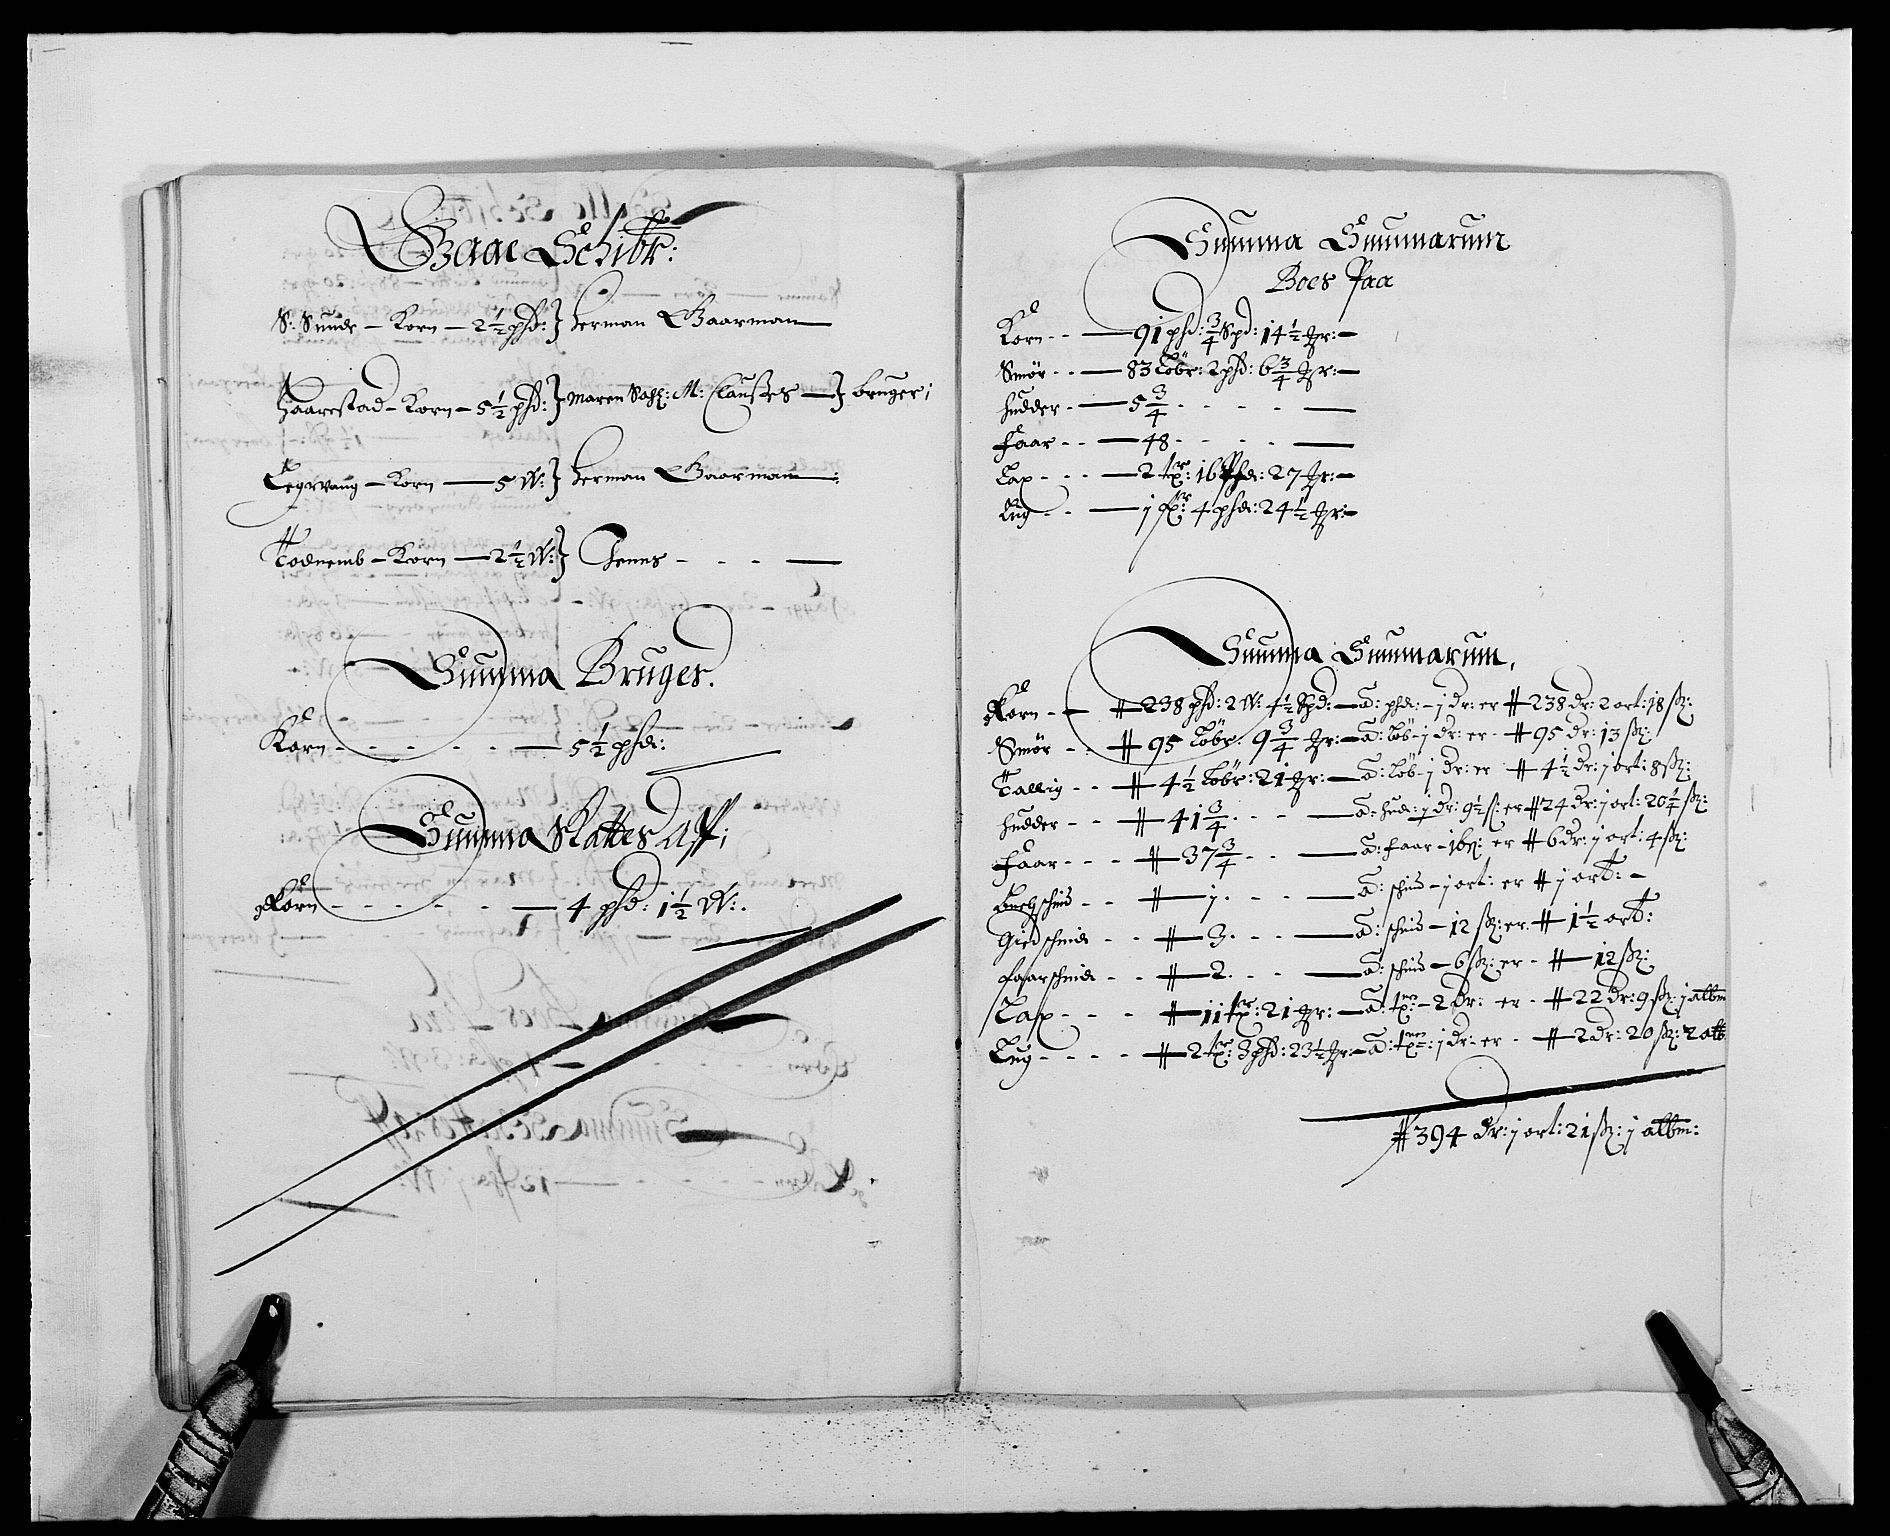 Schibr:
S: Sunde – Korn – 2½ phd: } Herman Gaarman
Haarestad – Korn – 5½ phd: } Maren Sahl: M: Clausses } bruger;
Korn – 5 W: } Herman Gaarman:
Todneimb – Korn – 2½ W: } Jenns
Summa Bruges.
Korn – 5½ phd:
Summa Skattes Aff;
Korn – 4 phd: 1½ W:
Summa Summarum
Boes Paa
Korn – 91 phd: ¾ Spd: 14½ mr:
Smör – 83 Löbr: 2 phd: 6¾ mr:
Hudder – 5¾
Faar – 48
Lax – 2 tr: 16 phd: 27 mr:
1 4 phd: 24½ mr:
Summa Summarum.
Korn – 238 phd: 2 W: 4½ Spd: – a: phd: – j dr: er 238 dr: 2 ort: 18 ß:
Smör – 95 Löbr: 9¾ mr: – a: löb – j dr: er – 95 dr: 13 ß:
Tallig – 4½ Löbr: 21 mr: – a: löb – j dr: er 4½ dr: j ort: 8 ß:
Hudder – 41¾ – a: hud: 9½ ß: er 24 dr: j ort: 20¼ ß:
Faar – 37¾ – a: faar – 16 ß: er 6 dr: j ort: 4 ß:
Buchschind – j – a: schind – j ort: er j ort:
Giedschind – 3 – a: schind – 12 ß: er 1½ ort:
Faarschind – 2 – a: schind – 6 ß: er – 12 ß:
Lax – 11 tr: 21 mr: – a: – 2 dr: er – 22 dr: 9 ß: j albm
2 tr: 3 phd: 23½ mr: – a: j dr: er – 2 dr: 20 ß: 2 alb
394 dr: j ort: 21 ß: j albm: